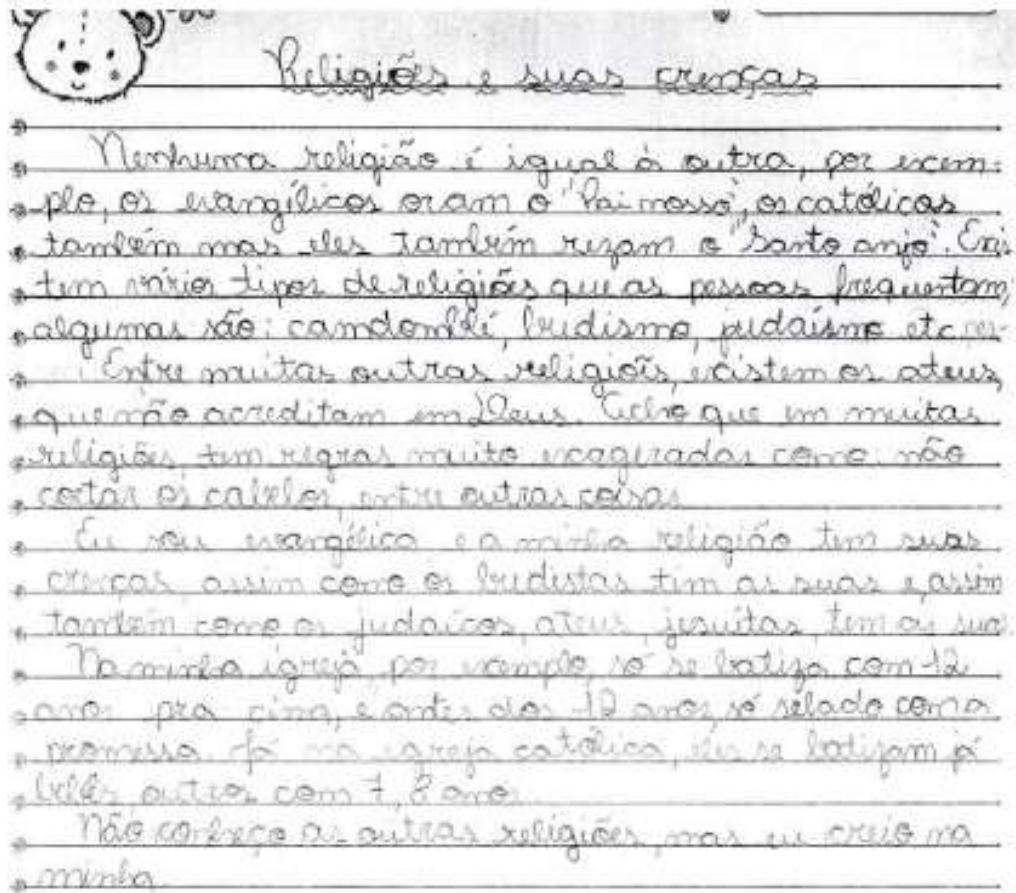 Religiões e suas crenças
Nenhuma religião é igual à outra, por exem-
plo, os evangélicos oram o "Pai nosso", os católicos
também mas eles também rezam o "Santo anjo". Exis
tem vários tipos de religiões que as pessoas frequentam,
algumas são: camdomblé, budismo, judaísmo etc
Entre muitas outras religiões, existem os ateus,
que não acreditam em Deus. Acho que em muitas
religiões tem regras muito exageradas como: não
cortar os cabelos, entre outras coisas
Eu sou evangélica e a minha religião tem suas
crenças, assim como os budistas tem as suas e, assim
também como os judaícos, ateus, jesuítas, tem as suas
Na minha igreja, por exemplo, só se batiza com 12
anos pra cima, e antes dos anos, só selado com a
promessa. Já na egreja católica, eles se batizam já
bebês, outros com 7, 8 anos.
Não conheço as outras religiões, mas eu creio na
minha